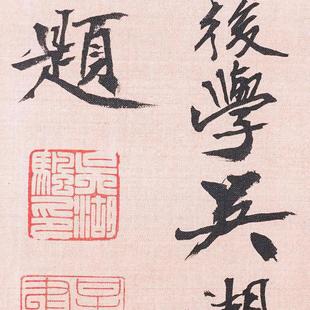 後學吳湖
題
吳湖
颿印